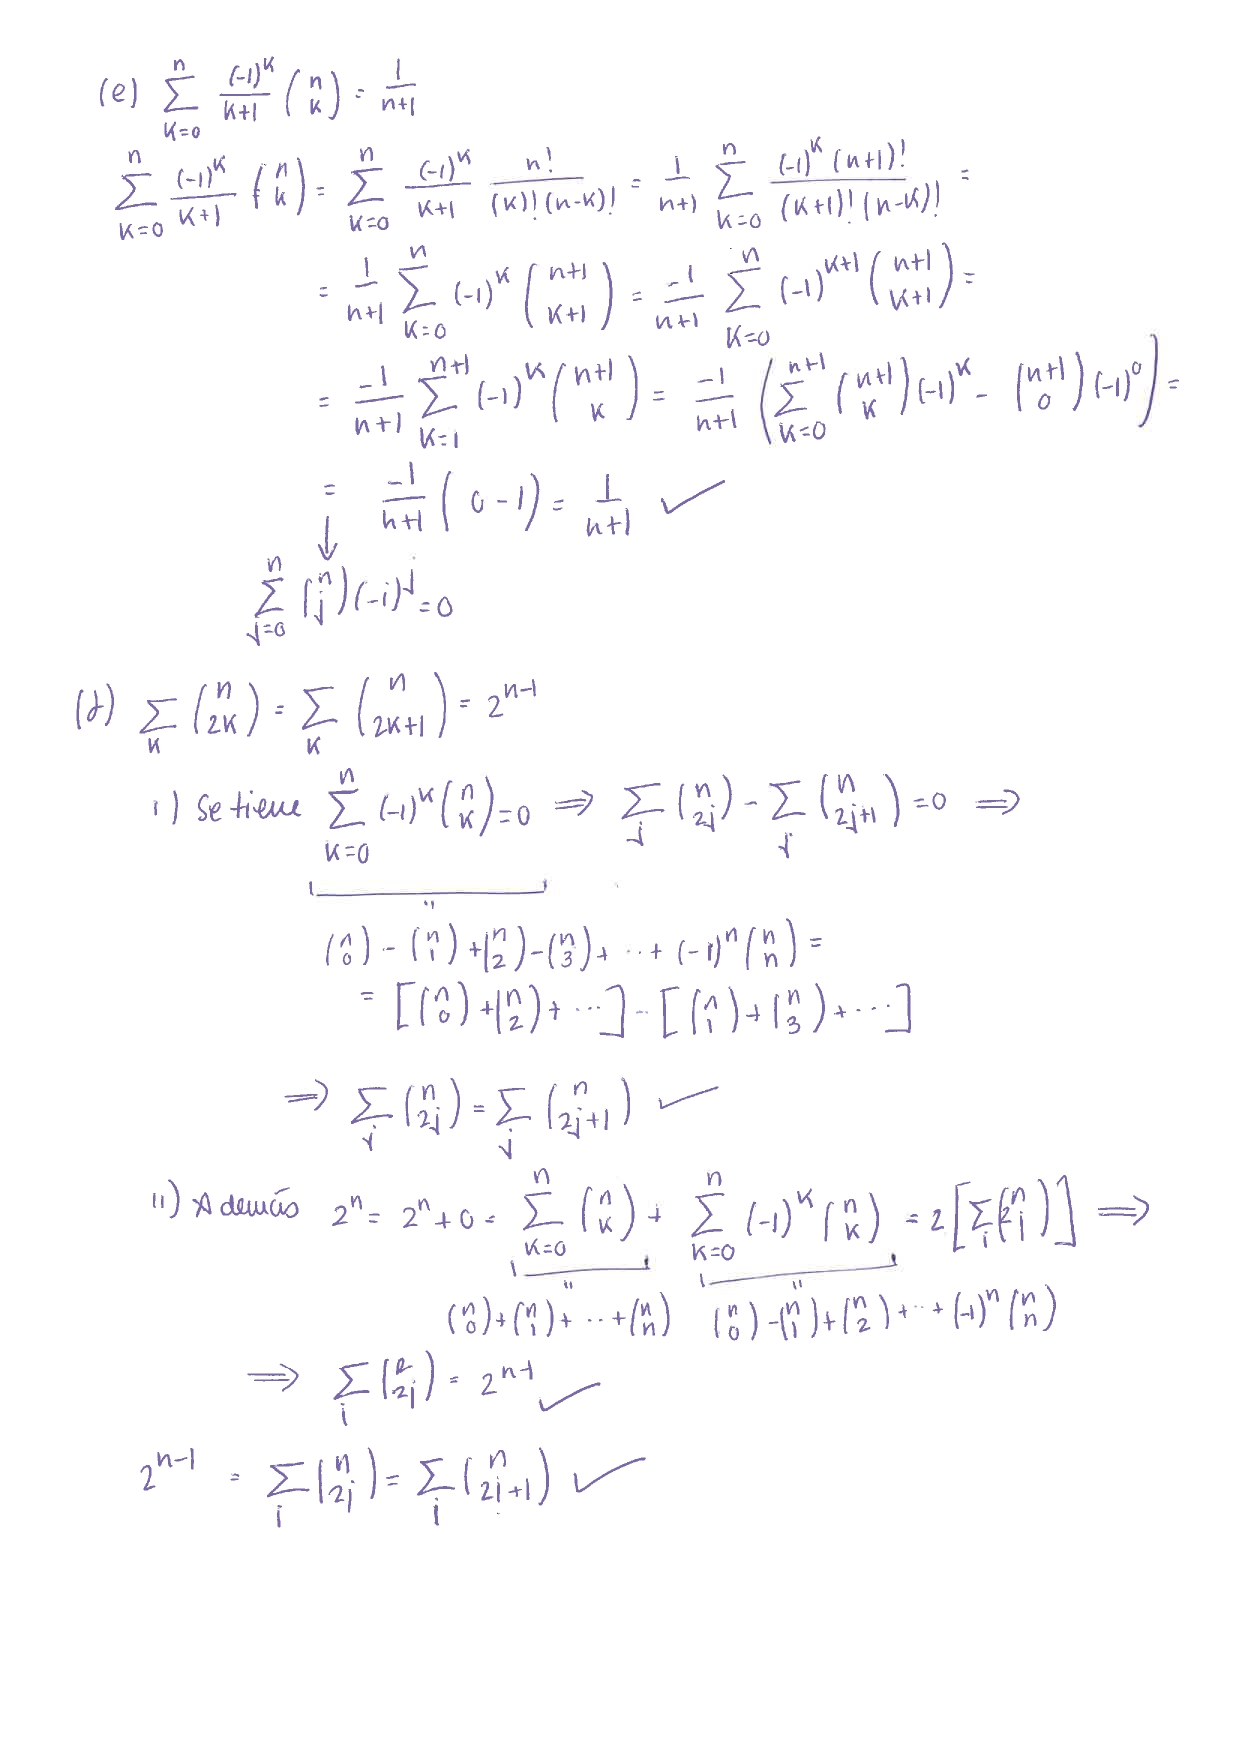 (e) \sum_{k=0}^{n} \frac{(-1)^k}{k+1} \binom{n}{k} = \frac{1}{n+1}
\sum_{k=0}^{n} \frac{(-1)^k}{k+1} \binom{n}{k} = \sum_{k=0}^{n} \frac{(-1)^k}{k+1} \frac{n!}{(k)!(n-k)!} = \frac{1}{n+1} \sum_{k=0}^{n} \frac{(-1)^k (n+1)!}{(k+1)!(n-k)!} =
= \frac{1}{n+1} \sum_{k=0}^{n} (-1)^k \binom{n+1}{k+1} = \frac{-1}{n+1} \sum_{k=0}^{n} (-1)^{k+1} \binom{n+1}{k+1} =
= \frac{-1}{n+1} \sum_{k=1}^{n+1} (-1)^k \binom{n+1}{k} = \frac{-1}{n+1} \left( \sum_{k=0}^{n+1} \binom{n+1}{k} (-1)^k - \binom{n+1}{0} (-1)^0 \right) =
= \frac{-1}{n+1} (0-1) = \frac{1}{n+1} ✓
↓
\sum_{j=0}^{n} \binom{n}{j} (-i)^j = 0
(f) \sum_{k} \binom{n}{2k} = \sum_{k} \binom{n}{2k+1} = 2^{n-1}
i) Se tiene \sum_{k=0}^{n} (-1)^k \binom{n}{k} = 0 ⟹ \sum_{j} \binom{n}{2j} - \sum_{j} \binom{n}{2j+1} = 0 ⟹
\binom{n}{0} - \binom{n}{1} + \binom{n}{2} - \binom{n}{3} + ... + (-1)^n \binom{n}{n} =
= [\binom{n}{0} + \binom{n}{2} + ...] - [\binom{n}{1} + \binom{n}{3} + ...]
⟹ \sum_{j} \binom{n}{2j} = \sum_{j} \binom{n}{2j+1} ✓
ii) Además 2^n = 2^n + 0 = \sum_{k=0}^{n} \binom{n}{k} + \sum_{k=0}^{n} (-1)^k \binom{n}{k} = 2 [\sum_{j} \binom{n}{2j}] ⟹
\binom{n}{0} + \binom{n}{1} + ... + \binom{n}{n} \binom{n}{0} - \binom{n}{1} + \binom{n}{2} + ... + (-1)^n \binom{n}{n}
⟹ \sum_{j} \binom{n}{2j} = 2^{n-1} ✓
2^{n-1} = \sum_{j} \binom{n}{2j} = \sum_{j} \binom{n}{2j+1} ✓